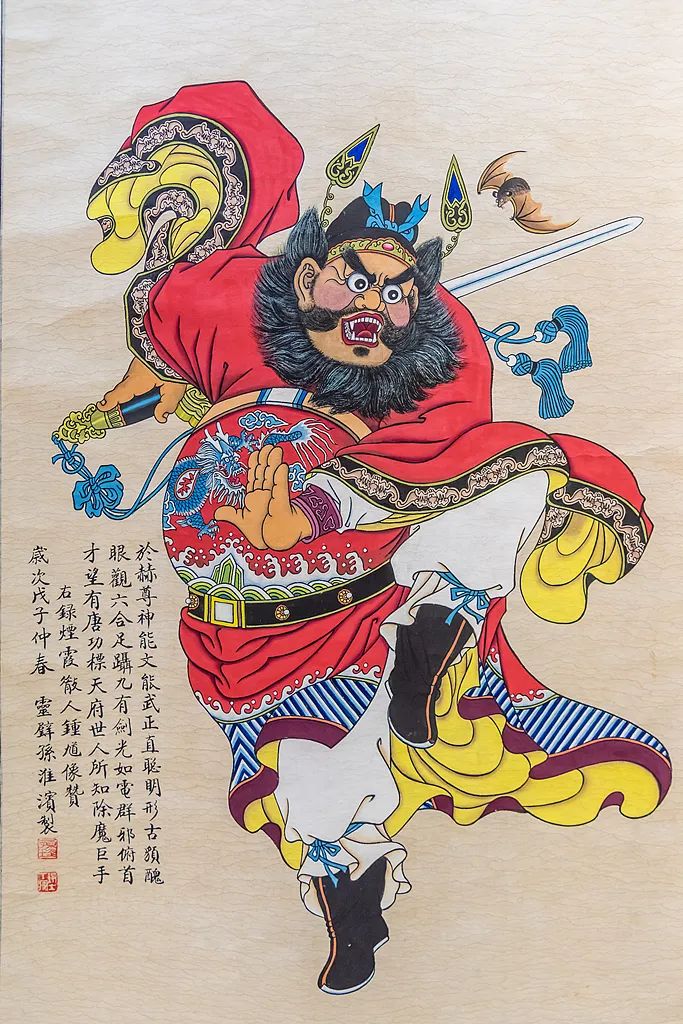 於赫尊神能文能武正直聪明形古貌醜
眼觀六合足躡九有劍光如電群邪俯首
才望有唐功標天府世人所知除魔巨手
右録煙霞散人鍾馗像贊
歲次戊子仲春 靈璧孫淮濱製